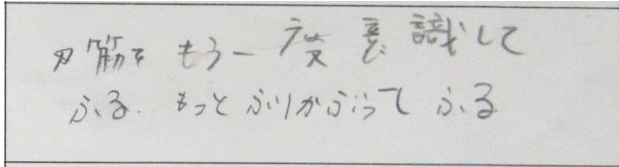 刃筋をもう一度意識して
ふる。もっとふりかぶって ふる